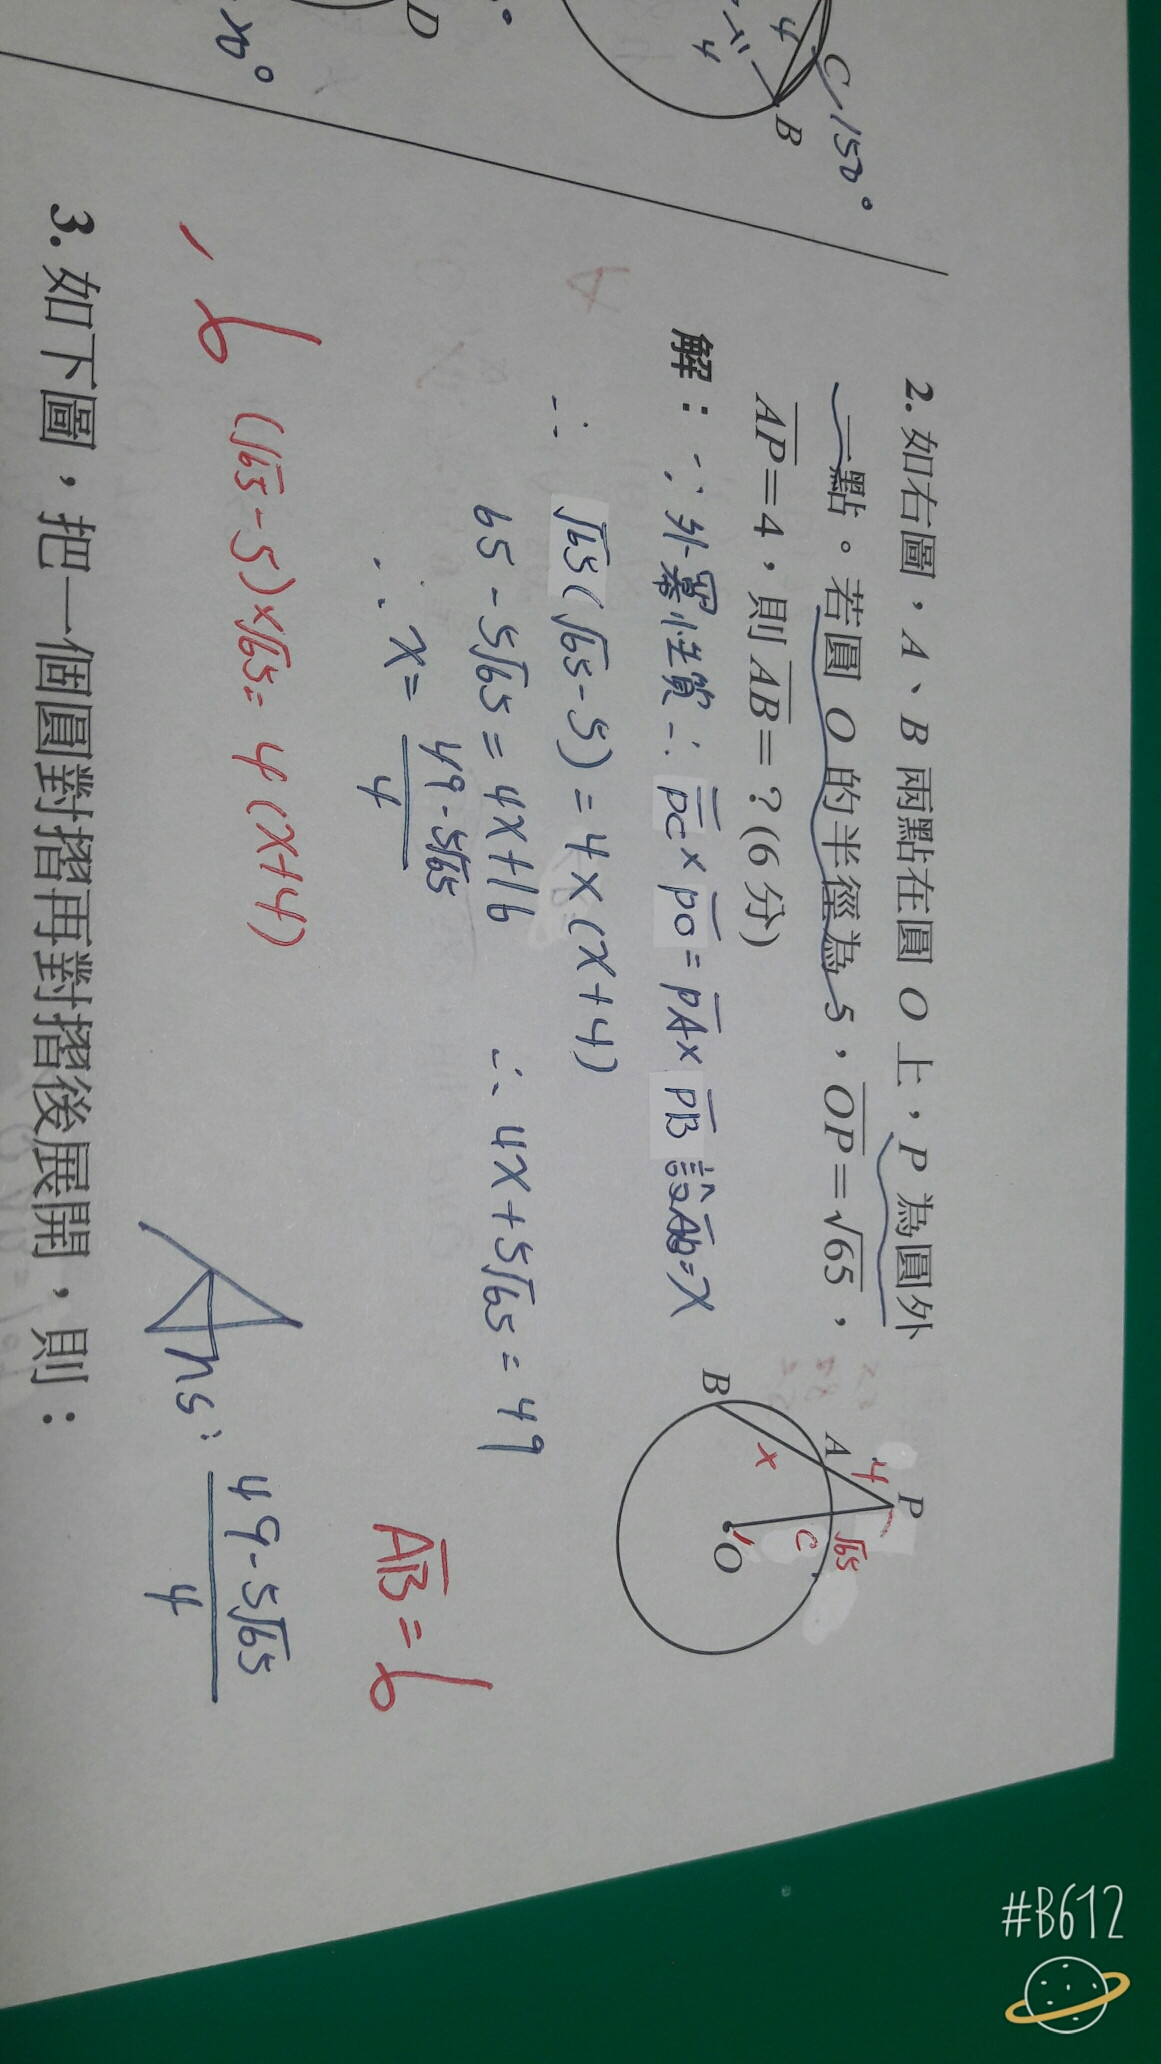 C 150°
4
4
B
D
2. 如右圖，A、B 兩點在圓 O 上，P 為圓外
一點。若圓 O 的半徑為 5，OP=√65，
AP=4，則 AB=？(6分)
解：∵外冪性質∴PC×PO=PA×PB 設AB=x
∴ √65(√65-5)=4×(x+4)
65-5√65=4x+16 ∴4x+5√65=49
∴x= 49-5√65
4
P
4
A
√65
C
B
x
O
AB=6
6 (√65-5)×√65=4(x+4)
Ans: 49-5√65
4
3. 如下圖，把一個圓對摺再對摺後展開，則：
#B612